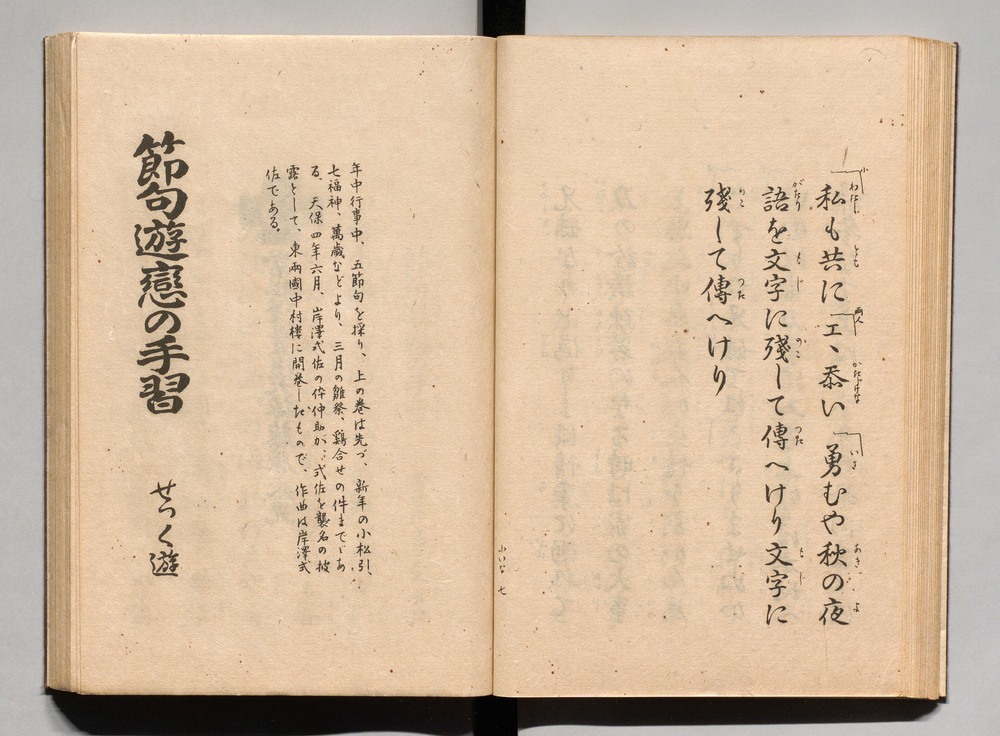 私も共に「エヽ忝い「勇むや秋の夜
語を文字に殘して傳へけり文字に
殘して傳へけり
小いな 七
年中行事中、五節句を採り、上の巻は先づ、新年の小松引、
七福神、萬歳などより、三月の雛祭、鷄合せの件まで〻あ
る、天保四年六月、岸澤式佐の伜仲助が、式佐を襲名の披
露として、東兩國中村樓に開巻したもので、作曲は岸澤式
佐である。
節句遊戀の手習
せつく遊